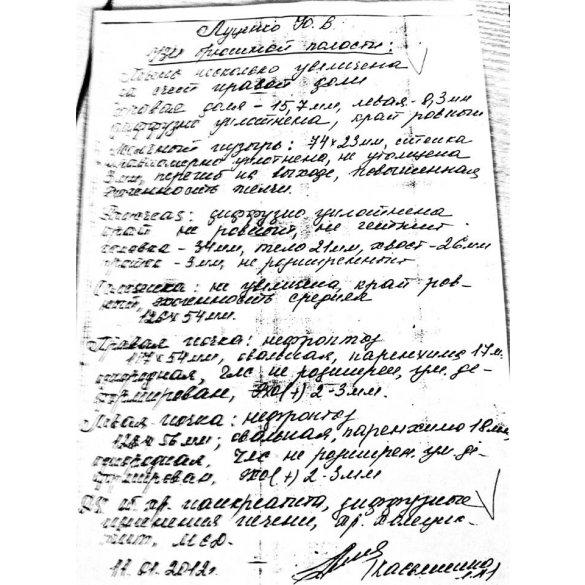 Луценко Ю. В.
УЗИ брюшной полости:
Печень несколько увеличена
за счёт правой доли
правая доля - 15,7 мм, левая - 8,3 мм
диффузно уплотнена, край ровный
Желчный пузырь: 74 х 23 мм, стенка
равномерно уплотнена, не утолщена
3 мм, перегиб на выходе, повышенная
эхогенность желчи.
Pancreas: диффузно уплотнена
край не ровный, не четкий
головка - 34 мм, тело 21 мм, хвост - 26 мм
проток - 3 мм, не расширен
Селезенка: не увеличена, край ров-
ный, эхогенность средняя
126 х 54 мм.
Правая почка: нефроптоз
117 х 54 мм, овальная, паренхима 17 м.
однородная, Члс не расширен, ум. де-
формирован, Эхо(+) 2-3 мм.
Левая почка: нефроптоз
128 х 56 мм; овальная, паренхима 18 мм,
однородная, Члс не расширен. ум де-
формирован, Эхо(+) 2-3 мм
DS хр. панкреатита, диффузные
изменения печени, хр. холецис-
тит, МСД.
11.01.2012г.